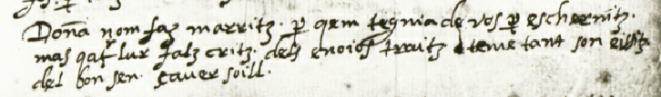 Donā nom faz marritz. p̄ qem tegnia de vos p̄ eschernitz.
mas qaṫ lur falz critz. dels enoios trauitz e teme tant son eissitz
del bon sen. q̄ auer soill.